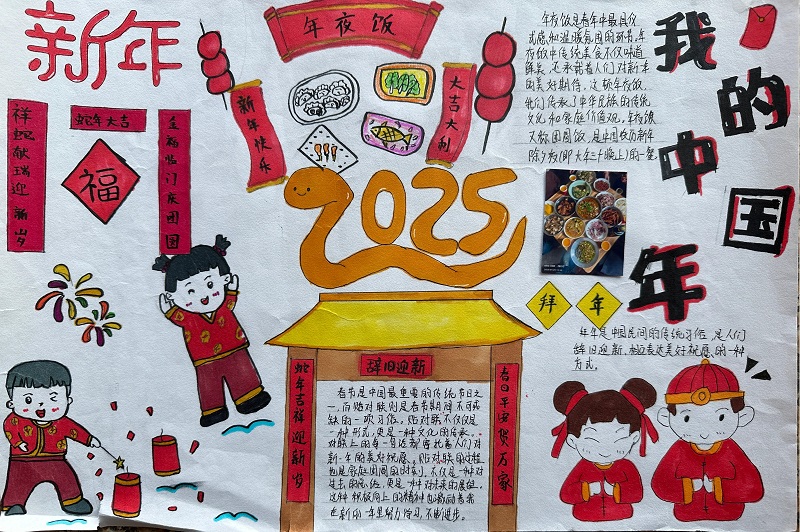 新年
年夜饭
新年快乐
大吉大利
祥蛇献瑞迎新岁
蛇年大吉
福
临门庆团圆
2025
年夜饭是春年中最具仪
式感和温暖氛围的环节,年
夜饭中传统美食不仅味道
鲜美,还承载着人们对新年
的美好期待,这顿年夜饭,
他们传承了中华民族的传统
文化和家庭价值观。年夜饭
又称团圆饭,是中国农历新年
除夕夜(即大年三十晚上)的一餐
我的中国年
拜年
年是中国民间的传统习俗,是人们
辞旧迎新、相互表达美好祝愿的一种
方式。
辞旧迎新
蛇年吉祥迎新岁
春日平安贺万家
春节是中国最重要的传统节日之
一,而贴对联则是春节期间不可或
缺的一项习俗。贴对联不仅仅是
一种形式,更是一种文化的传承。
对联上的每一句话都寄托着人们对
新一年的美好祝愿。贴对联的过程
也是家庭团圆的时刻,不仅是一种对
过去的总结,更是一种对未来的展望,
这种积极向上的精神也激励着我
在新的一年里努力学习,不断进步。